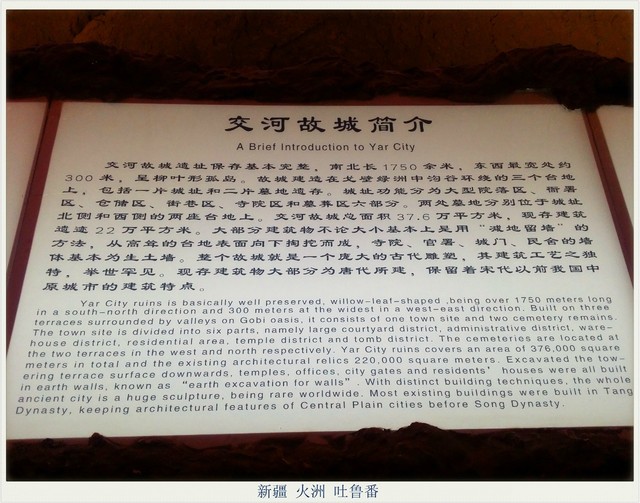 交河故城简介
A Brief Introduction to Yar City
交河故城遗址保存基本完整，南北长1750余米，东西最宽处约
300米，呈柳叶形孤岛。故城建造在戈壁绿洲中沟谷环绕的三个台地
上，包括一片城址和二片墓地遗存。城址功能分为大型院落区、衙署
区、仓储区、街巷区、寺院区和墓葬区六部分。两处墓地分别位于城址
北侧和西侧的两座台地上。交河故城总面积37.6万平方米，现存建筑
遗迹22万平方米。大部分建筑物不论大小基本上是用“减地留墙”的
方法，从高耸的台地表面向下掏挖而成，寺院、官署、城门、民舍的墙
体基本为生土墙。整个故城就是一个庞大的古代雕塑，其建筑工艺之独
特，举世罕见。现存建筑物大部分为唐代所建，保留着宋代以前我国中
原城市的建筑特点。
Yar City ruins is basically well preserved, willow-leaf-shaped ,being over 1750 meters long
in a south-north direction and 300 meters at the widest in a west-east direction. Built on three
terraces surrounded by valleys on Gobi oasis, it consists of one town site and two cemetery remains.
The town site is divided into six parts, namely large courtyard district, administrative district, ware-
house district, residential area, temple district and tomb district. The cemeteries are located at
the two terraces in the west and north respectively. Yar City ruins covers an area of 376,000 square
meters in total and the existing architectural relics 220,000 square meters. Excavated the tow-
ering terrace surface downwards, temples, offices, city gates and residents’ houses were all built
in earth walls, known as “earth excavation for walls”. With distinct building techniques, the whole
ancient city is a huge sculpture, being rare worldwide. Most existing buildings were built in Tang
Dynasty, keeping architectural features of Central Plain cities before Song Dynasty.
新疆 火洲 吐鲁番